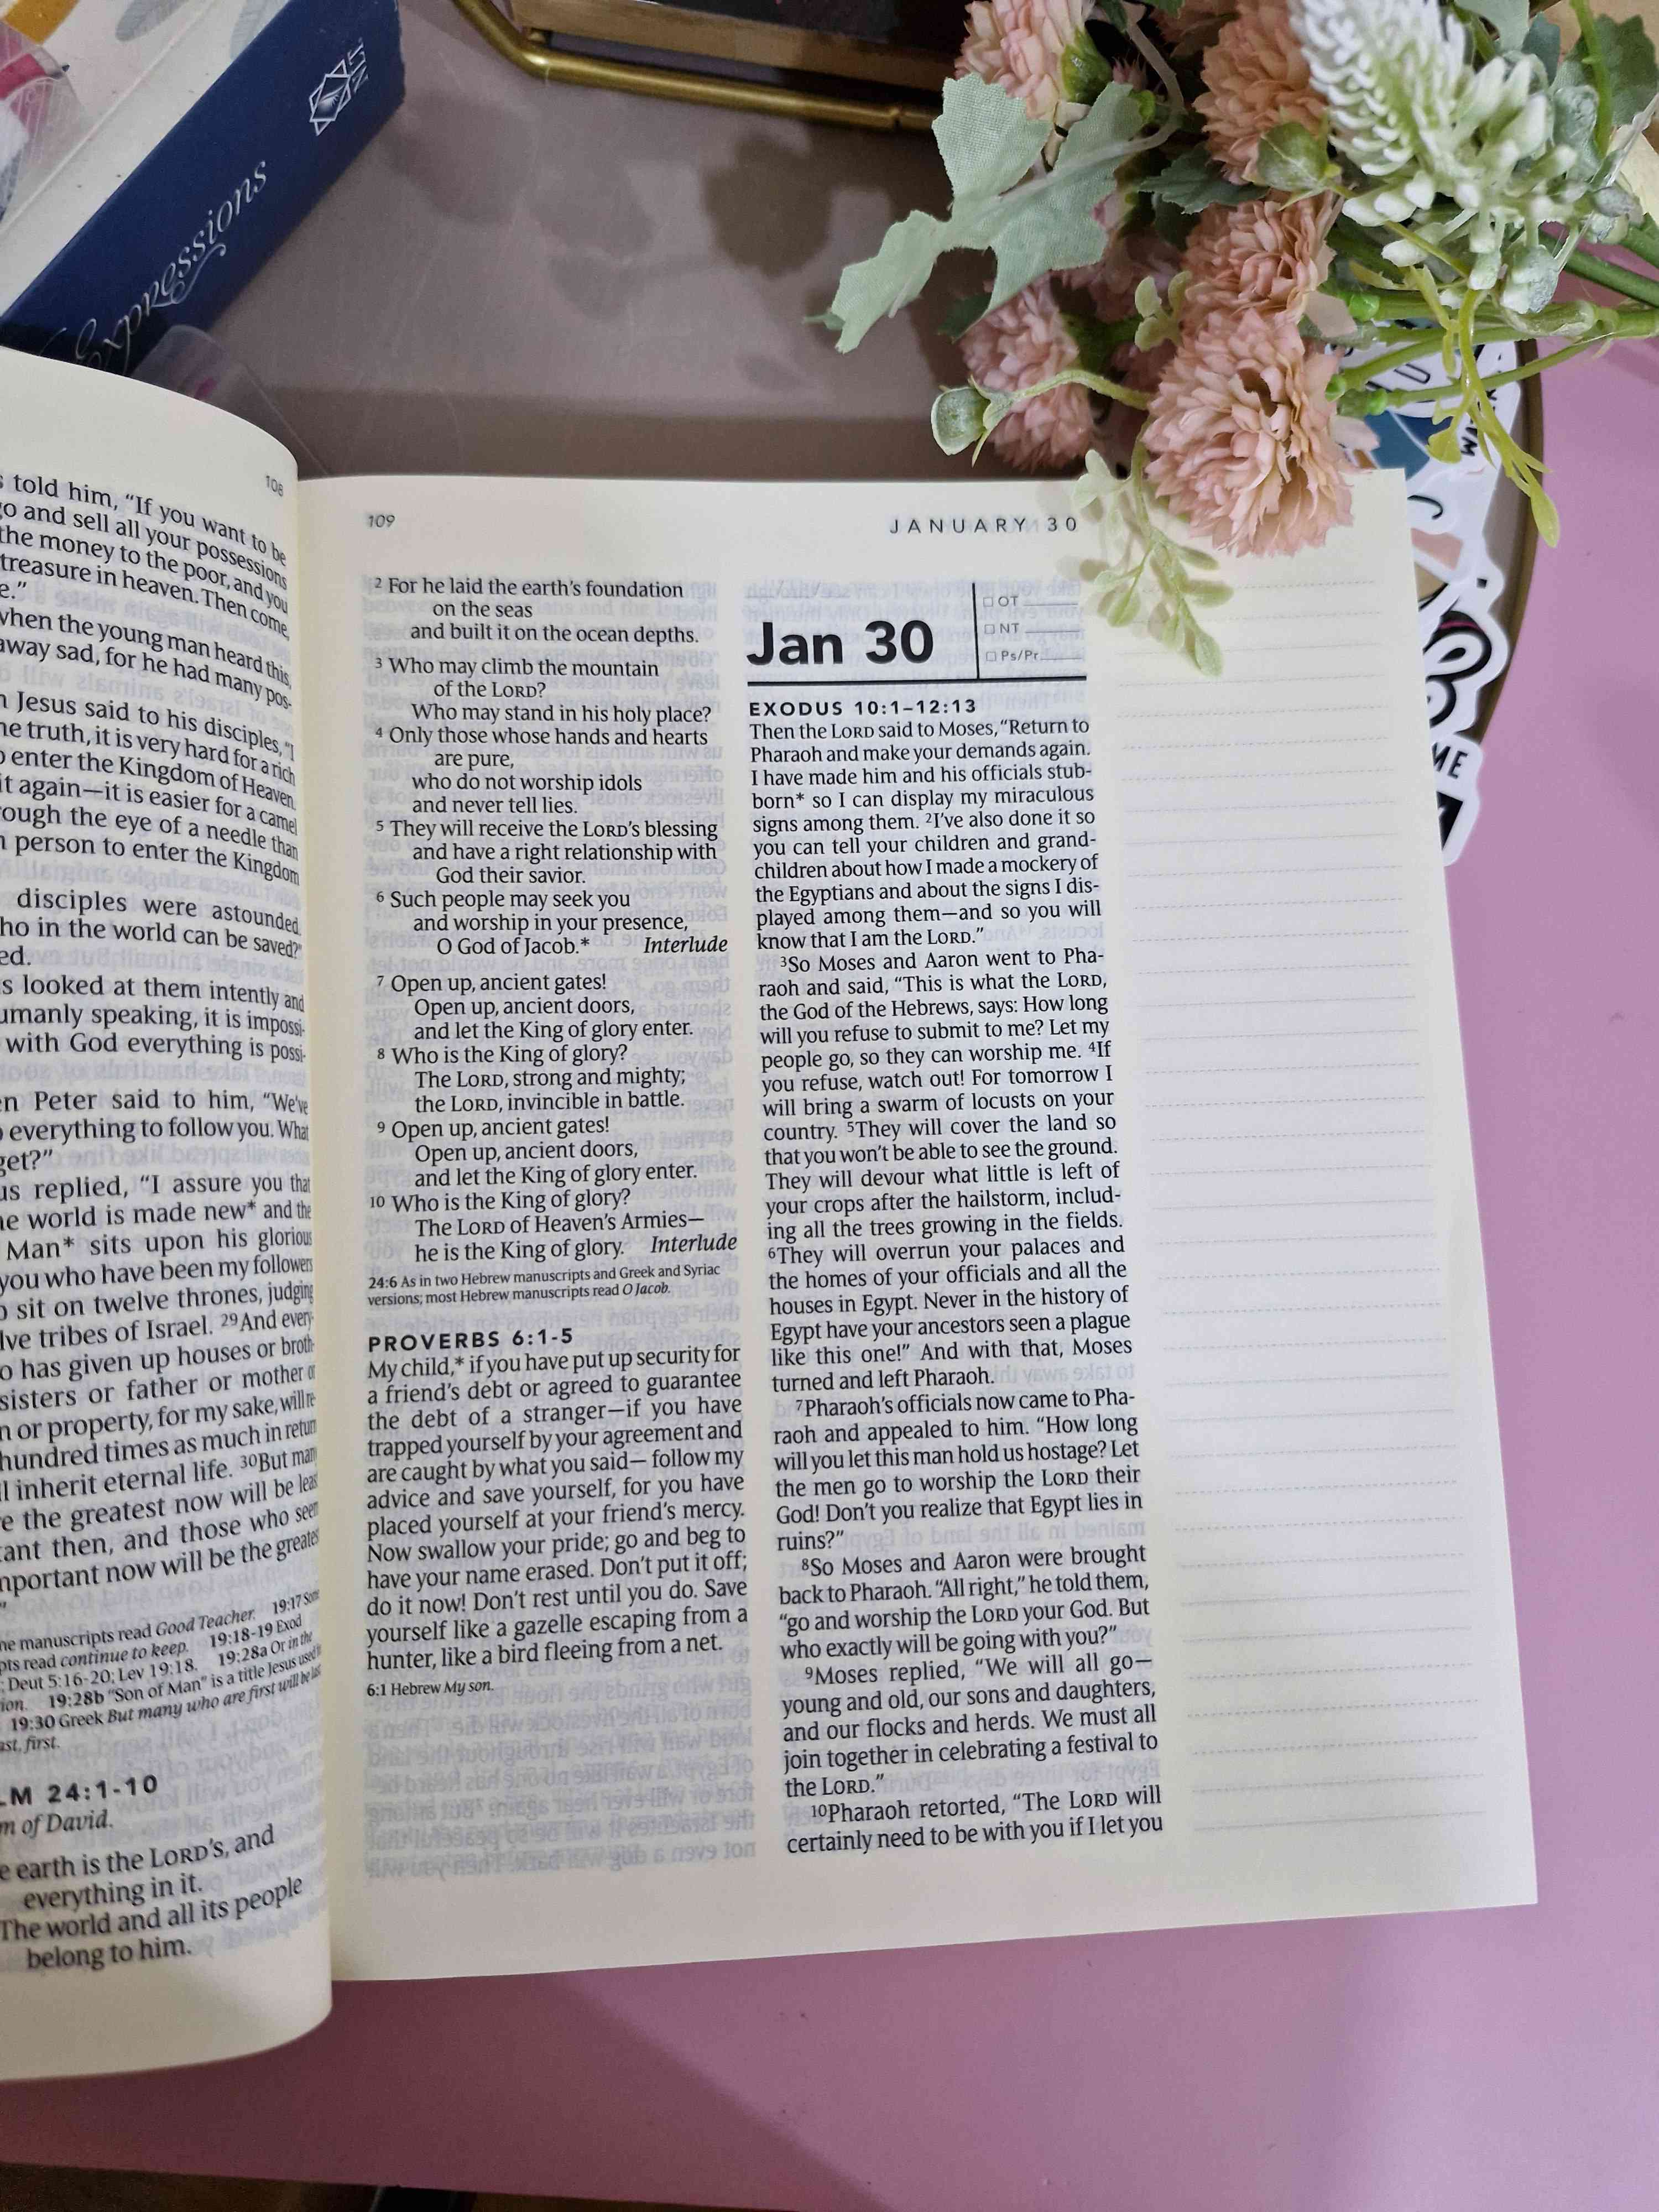 NLT
Expressions
108
s told him, “If you want to be
go and sell all your possessions
the money to the poor, and you
treasure in heaven. Then come,
e.”
when the young man heard this,
away sad, for he had many pos-
Jesus said to his disciples, “I
he truth, it is very hard for a rich
o enter the Kingdom of Heaven.
it again—it is easier for a camel
rough the eye of a needle than
person to enter the Kingdom
disciples were astounded.
ho in the world can be saved?”
ed.
s looked at them intently and
umanly speaking, it is impossi-
with God everything is possi-
en Peter said to him, “We’ve
everything to follow you. What
get?”
us replied, “I assure you that
he world is made new* and the
Man* sits upon his glorious
you who have been my followers
o sit on twelve thrones, judging
lve tribes of Israel. 29And every-
o has given up houses or broth-
sisters or father or mother or
n or property, for my sake, will re-
hundred times as much in return
ll inherit eternal life. 30But many
e the greatest now will be least
ant then, and those who seem
mportant now will be the greatest
”
me manuscripts read Good Teacher. 19:17 Some
pts read continue to keep. 19:18-19 Exod
; Deut 5:16-20; Lev 19:18. 19:28a Or in the
ion. 19:28b “Son of Man” is a title Jesus used
19:30 Greek But many who are first will be last;
ast, first.
LM 24:1-10
m of David.
e earth is the LORD’s, and
everything in it.
The world and all its people
belong to him.
109
JANUARY 30
2 For he laid the earth’s foundation
on the seas
and built it on the ocean depths.
3 Who may climb the mountain
of the LORD?
Who may stand in his holy place?
4 Only those whose hands and hearts
are pure,
who do not worship idols
and never tell lies.
5 They will receive the LORD’s blessing
and have a right relationship with
God their savior.
6 Such people may seek you
and worship in your presence,
O God of Jacob.* Interlude
7 Open up, ancient gates!
Open up, ancient doors,
and let the King of glory enter.
8 Who is the King of glory?
The LORD, strong and mighty;
the LORD, invincible in battle.
9 Open up, ancient gates!
Open up, ancient doors,
and let the King of glory enter.
10 Who is the King of glory?
The LORD of Heaven’s Armies—
he is the King of glory. Interlude
24:6 As in two Hebrew manuscripts and Greek and Syriac
versions; most Hebrew manuscripts read O Jacob.
PROVERBS 6:1-5
My child,* if you have put up security for
a friend’s debt or agreed to guarantee
the debt of a stranger—if you have
trapped yourself by your agreement and
are caught by what you said— follow my
advice and save yourself, for you have
placed yourself at your friend’s mercy.
Now swallow your pride; go and beg to
have your name erased. Don’t put it off;
do it now! Don’t rest until you do. Save
yourself like a gazelle escaping from a
hunter, like a bird fleeing from a net.
6:1 Hebrew My son.
Jan 30
OT
NT
Ps/Pr
EXODUS 10:1–12:13
Then the LORD said to Moses, “Return to
Pharaoh and make your demands again.
I have made him and his officials stub-
born* so I can display my miraculous
signs among them. 2I’ve also done it so
you can tell your children and grand-
children about how I made a mockery of
the Egyptians and about the signs I dis-
played among them—and so you will
know that I am the LORD.”
3So Moses and Aaron went to Pha-
raoh and said, “This is what the LORD,
the God of the Hebrews, says: How long
will you refuse to submit to me? Let my
people go, so they can worship me. 4If
you refuse, watch out! For tomorrow I
will bring a swarm of locusts on your
country. 5They will cover the land so
that you won’t be able to see the ground.
They will devour what little is left of
your crops after the hailstorm, includ-
ing all the trees growing in the fields.
6They will overrun your palaces and
the homes of your officials and all the
houses in Egypt. Never in the history of
Egypt have your ancestors seen a plague
like this one!” And with that, Moses
turned and left Pharaoh.
7Pharaoh’s officials now came to Pha-
raoh and appealed to him. “How long
will you let this man hold us hostage? Let
the men go to worship the LORD their
God! Don’t you realize that Egypt lies in
ruins?”
8So Moses and Aaron were brought
back to Pharaoh. “All right,” he told them,
“go and worship the LORD your God. But
who exactly will be going with you?”
9Moses replied, “We will all go—
young and old, our sons and daughters,
and our flocks and herds. We must all
join together in celebrating a festival to
the LORD.”
10Pharaoh retorted, “The LORD will
certainly need to be with you if I let you
ME